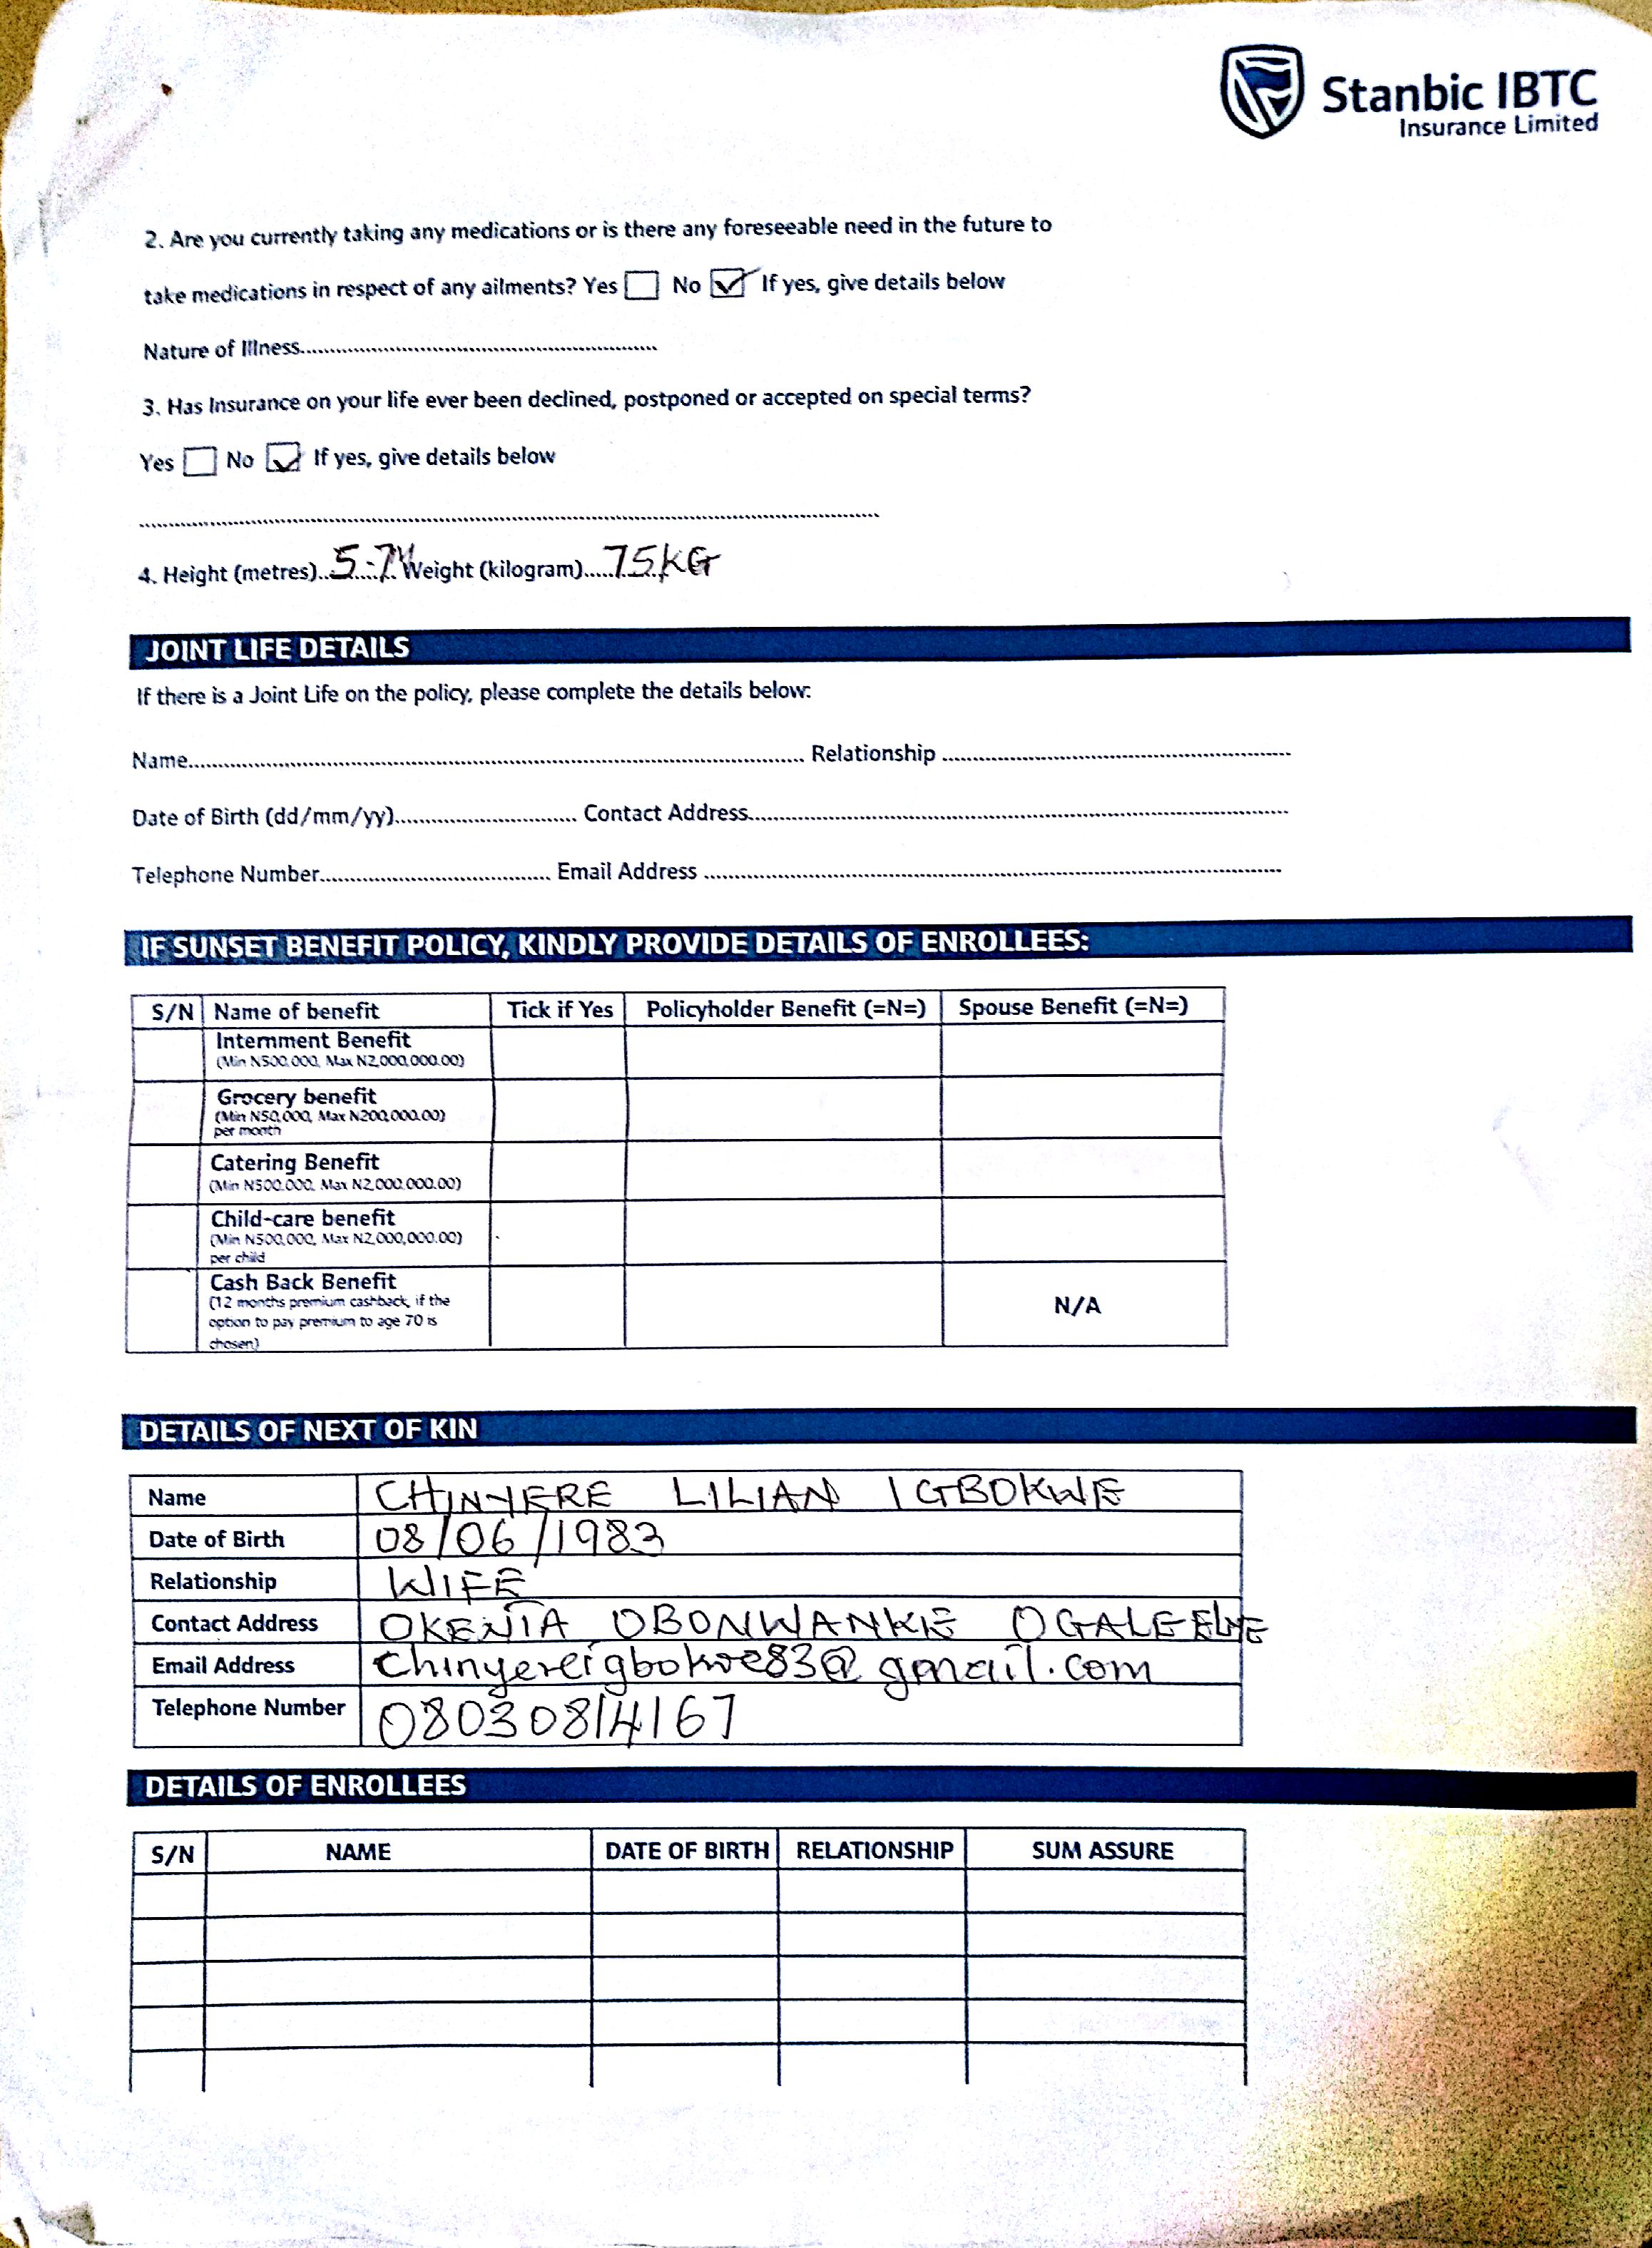 Stanbic IBTC
Insurance Limited
2. Are you currently taking any medications or is there any foreseeable need in the future to
take medications in respect of any ailments? Yes No If yes, give details below
Nature of Illness
3. Has Insurance on your life ever been declined, postponed or accepted on special terms?
Yes No If yes, give details below
4. Height (metres) 5.7" Weight (kilogram) 75KG
JOINT LIFE DETAILS
If there is a Joint Life on the policy, please complete the details below:
Name Relationship
Date of Birth (dd/mm/yy) Contact Address
Telephone Number Email Address
IF SUNSET BENEFIT POLICY, KINDLY PROVIDE DETAILS OF ENROLLEES:
S/N Name of benefit Tick if Yes Policyholder Benefit (=N=) Spouse Benefit (=N=)
Internment Benefit
(Min N500,000, Max N2,000,000.00)
Grocery benefit
(Min N50,000, Max N200,000.00)
per month
Catering Benefit
(Min N500,000, Max N2,000,000.00)
Child-care benefit
(Min N500,000, Max N2,000,000.00)
per child
Cash Back Benefit
(12 months premium cashback, if the
option to pay premium to age 70 is
chosen)
N/A
DETAILS OF NEXT OF KIN
Name CHINYERE LILIAN IGBOKWE
Date of Birth 08/06/1983
Relationship WIFE
Contact Address OBONWANKIE OGALE ELEME
Email Address chinyereigbokwe83@gmail.com
Telephone Number 08030814167
DETAILS OF ENROLLEES
S/N NAME DATE OF BIRTH RELATIONSHIP SUM ASSURE